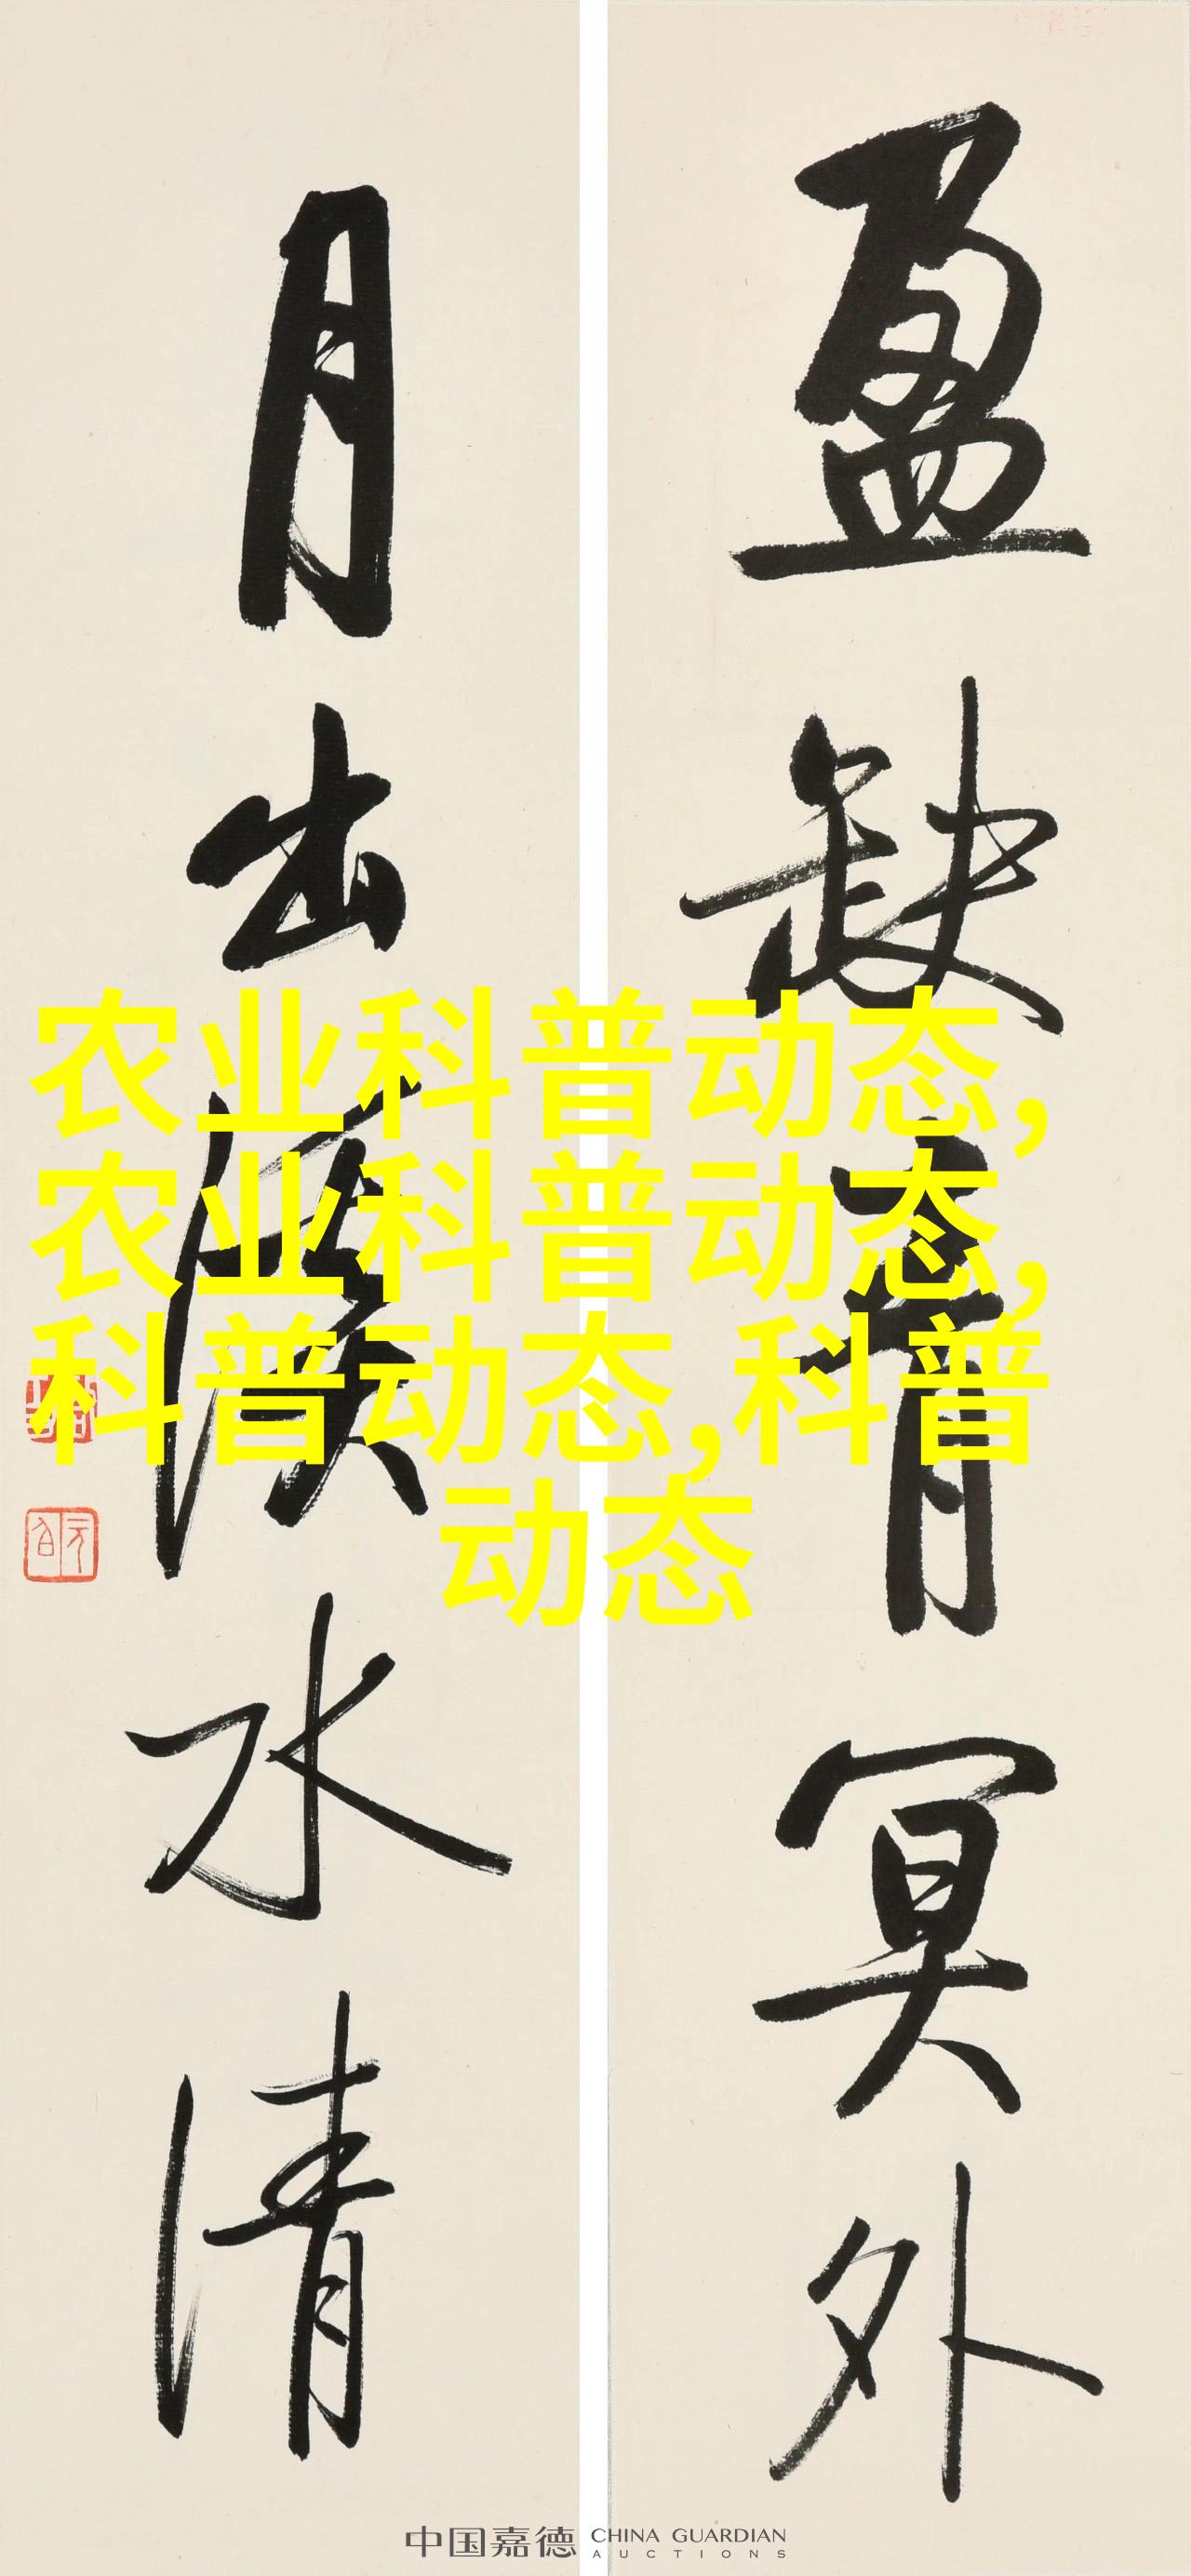 盈缺青冥外
月出溪水清
农业科普动态,
农业科普动态,
科普动态,科普
动态
中国嘉德 CHINA GUARDIAN
AUCTIONS